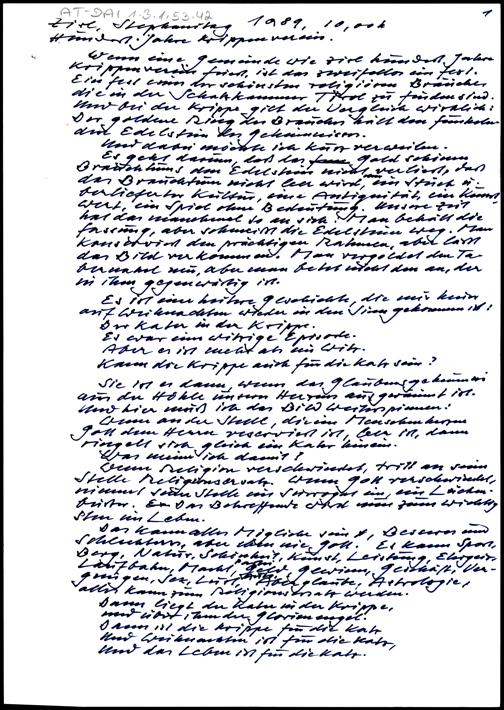 AT-DAI 1.3.1.53.42
1
Zirl, Stephanitag 1989, 10,00h
Hundert Jahre Krippenverein.
Wenn eine Gemeinde wie Zirl hundert Jahre
Krippenverein feiert, ist das zweifellos ein Fest.
Ein Fest eines der schönsten religiösen Bräuche,
die in der Schatzkammer Tirol zu finden sind.
Und bei der Krippe gilt der Vergleich wirklich:
Der goldene Ring des Brauches hält den funkelnden
Edelstein des Geheimnisses.
Und dabei möchte ich kurz verweilen.
Es geht darum, daß das Gold schönen
Brauchtums den Edelstein nicht verliert, daß
das Brauchtum nicht leer wird, ein Stück ü-
berlieferter Kultur, eine Antiquität, ein Kunst
wert, ein Spiel ohne Bedeutung. Unsere Zeit
hat das manchmal so an sich. Man behält die
Fassung, aber schmeißt die Edelsteine weg. Man
konserviert den prächtigen Rahmen, aber läßt
das Bild verkommen. Man vergoldet den Ta
bernakel neu, aber man betet nicht den an, der
in ihm gegenwärtig ist.
Es ist eine heitere Geschichte, die mir heuer
auf Weihnachten wieder in den Sinn gekommen ist:
Der Kater in der Krippe.
Es war eine witzige Episode.
Aber es ist mehr als ein Witz.
Kann die Krippe auch für die Katz sein?
Sie ist es dann, wenn das Glaubensgeheimnis
aus der Höhle unseres Herzens ausgeräumt ist.
Und hier muß ich das Bild weiterspinnen:
Wenn an der Stelle, die im Menschenherzen
Gott dem Herrn reserviert ist, leer ist, dann
ringelt sich gleich ein Kater hinein.
Was meine ich damit?
Wenn Religion verschwindet, tritt an seine
Stelle Religionsersatz. Wenn Gott verschwindet,
nimmt seine Stelle ein Surrogat ein, ein Lücken-
büßer. Das Betreffende wird nun zum Wichtig
sten im Leben.
Das kann alles Mögliche sein, Besseres und
Schlechteres, aber eben nie Gott. Es kann Sport,
Berg, Natur, Schönheit, Kunst, Leistung, Ehrgeiz,
Laufbahn, Macht, Geld, Gewinn, Geschäft, Ver-
gnügen, Sex, Lust, Aberglaube, Astrologie,
alles kann zum Religionsersatz werden.
Dann liegt der Kater in der Krippe,
und über ihm der Glorienengel.
Dann ist die Krippe für die Katz
Und Weihnachten ist für die Katz,
Und das Leben ist für die Katz.